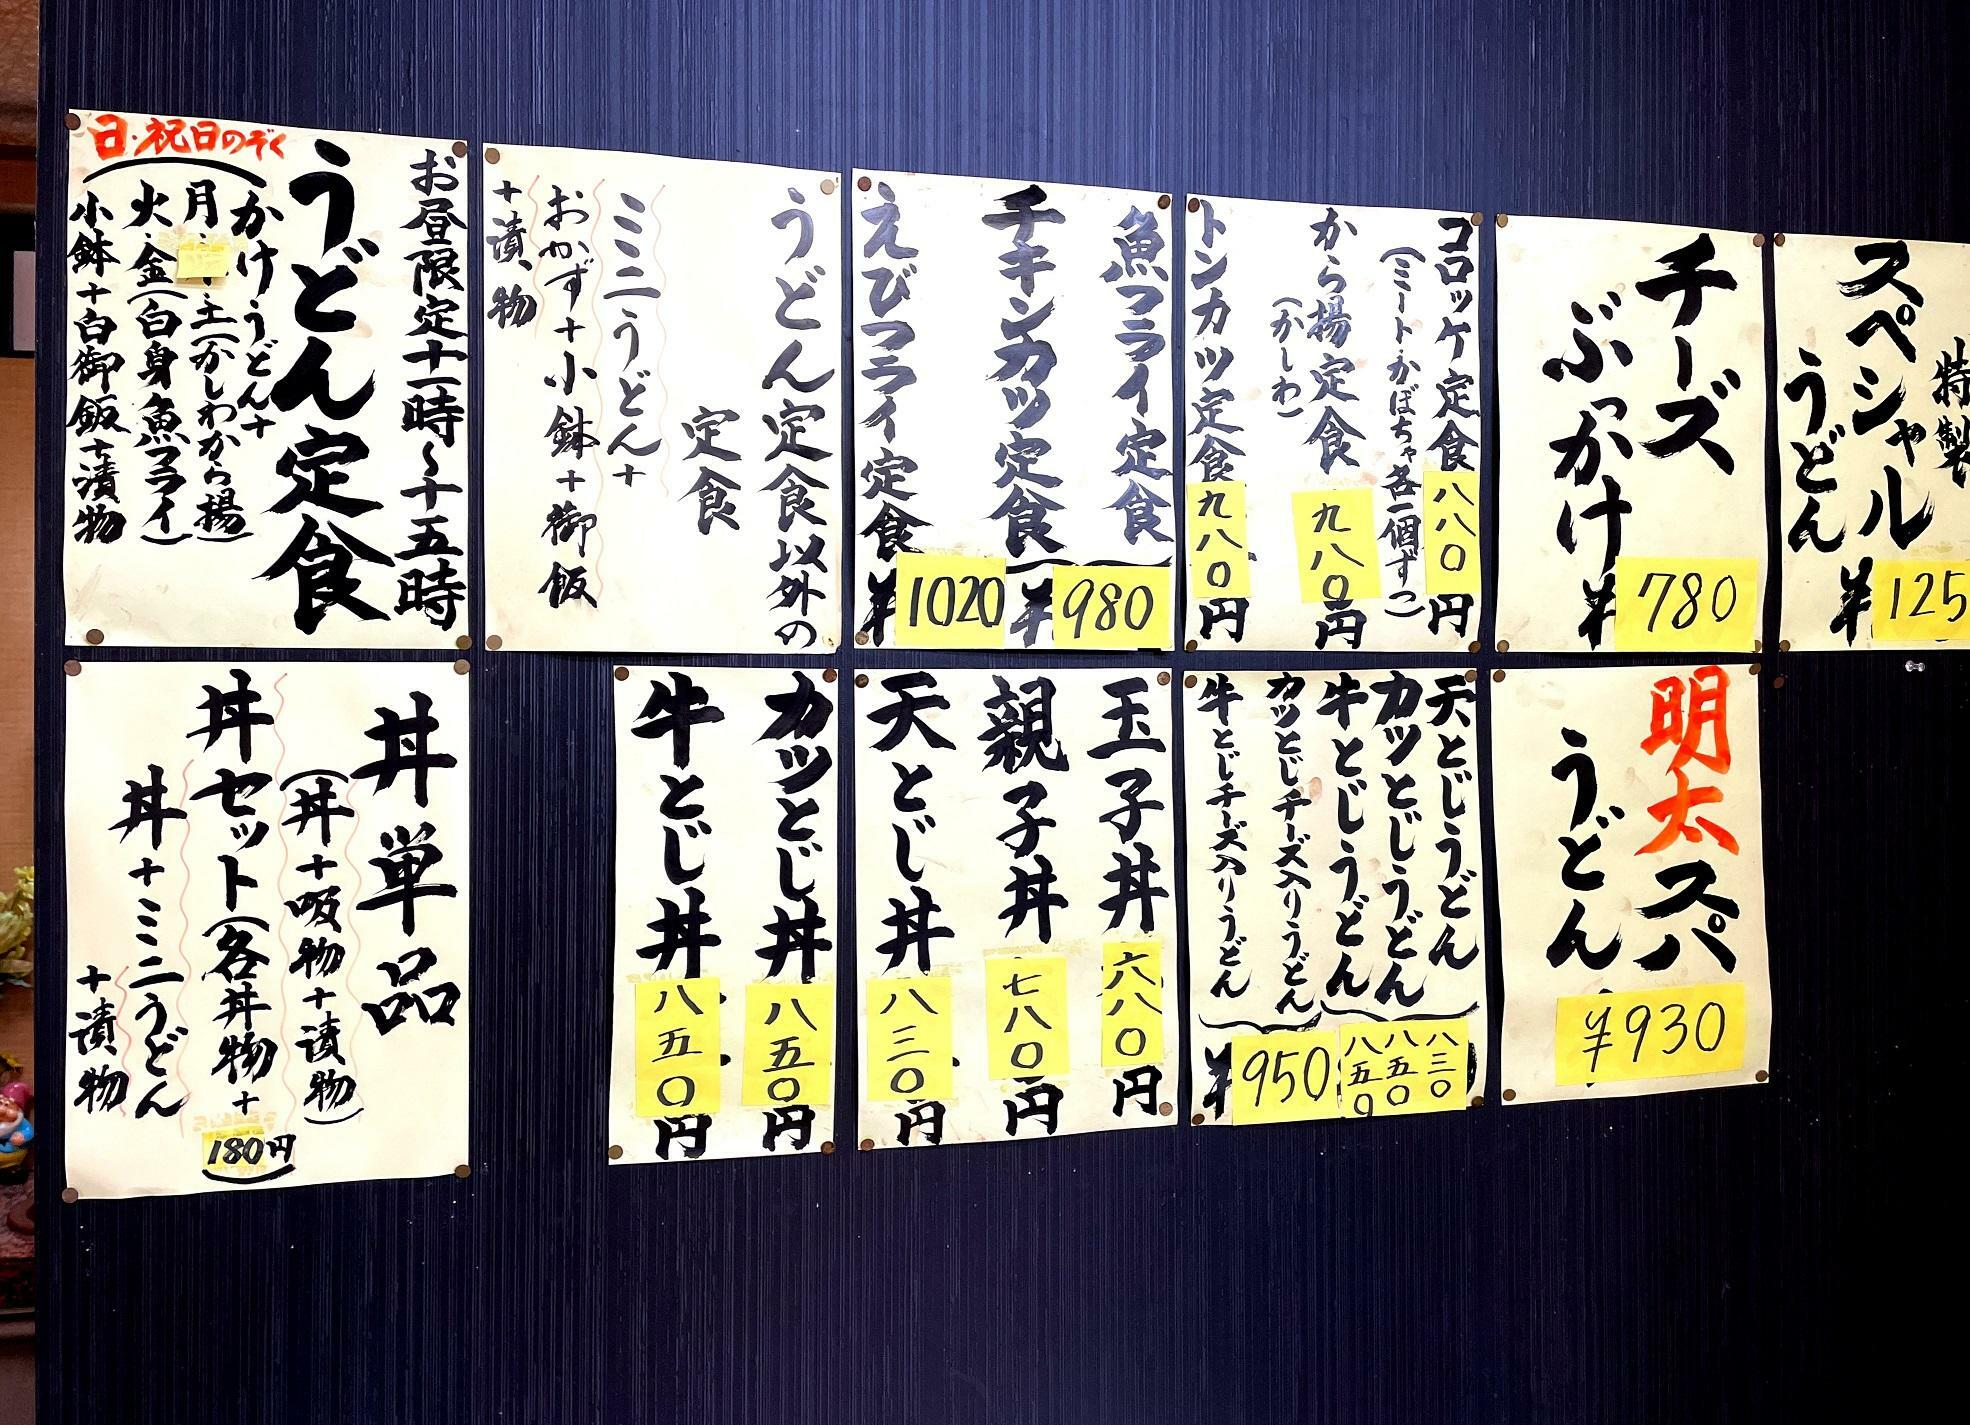 特製
スペシャル
うどん
¥125
チーズ
ぶっかけ
¥780
コロッケ定食 八八〇円
(ミート・かぼちゃ各一個ずつ)
から揚定食 九八〇円
(かしわ)
トンカツ定食 九八〇円
魚フライ定食
チキンカツ定食
¥980
えびフライ定食
¥1020
うどん定食以外の
定食
ミニうどん+
おかず+小鉢+御飯
+漬物
お昼限定十一時~十五時
うどん定食
日・祝日のぞく
(かけうどん+
月・土(かしわから揚)
火・金(白身魚フライ)
小鉢+白御飯+漬物
明太スパ
うどん
¥930
天とじうどん
カツとじうどん
牛とじうどん
八三〇
八五〇
八五〇
カツとじチーズ入りうどん
牛とじチーズ入りうどん
¥950
玉子丼 六八〇円
親子丼 七八〇円
天とじ丼 八三〇円
カツとじ丼 八五〇円
牛とじ丼 八五〇円
丼単品
(丼+吸物+漬物)
丼セット(各丼物+180円)
丼+ミニうどん
+漬物